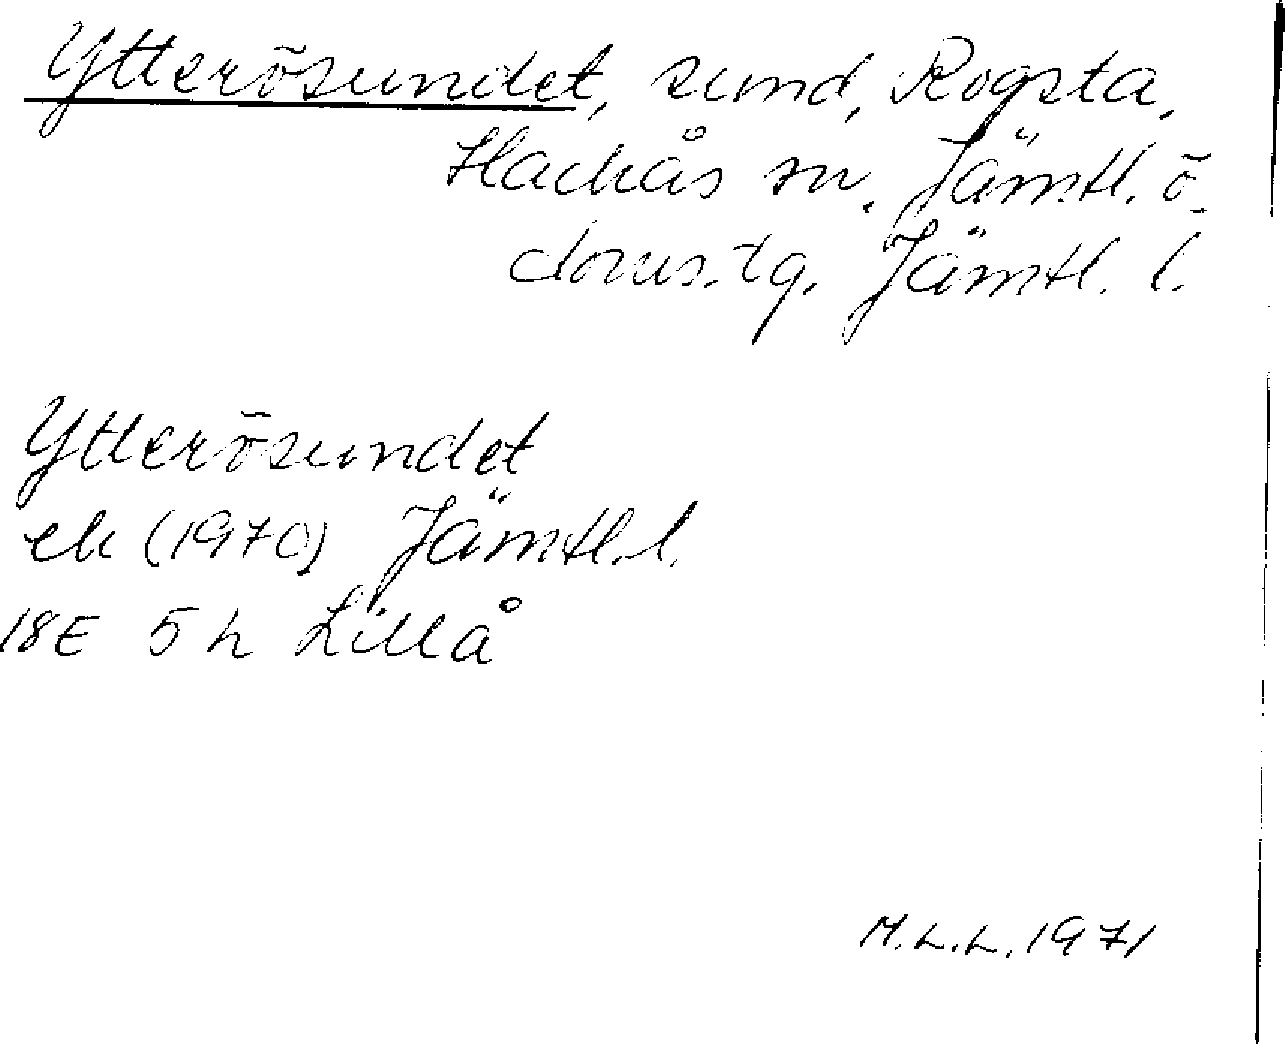 Ytterösundet, sund, Rogsta,
Hackås sn. Jämtl. ö.
doms.tg. Jämtl. l.
Ytterösundet
ek (1970) Jämtl.l.
18E 5h Lillå
M.L.L. 1971